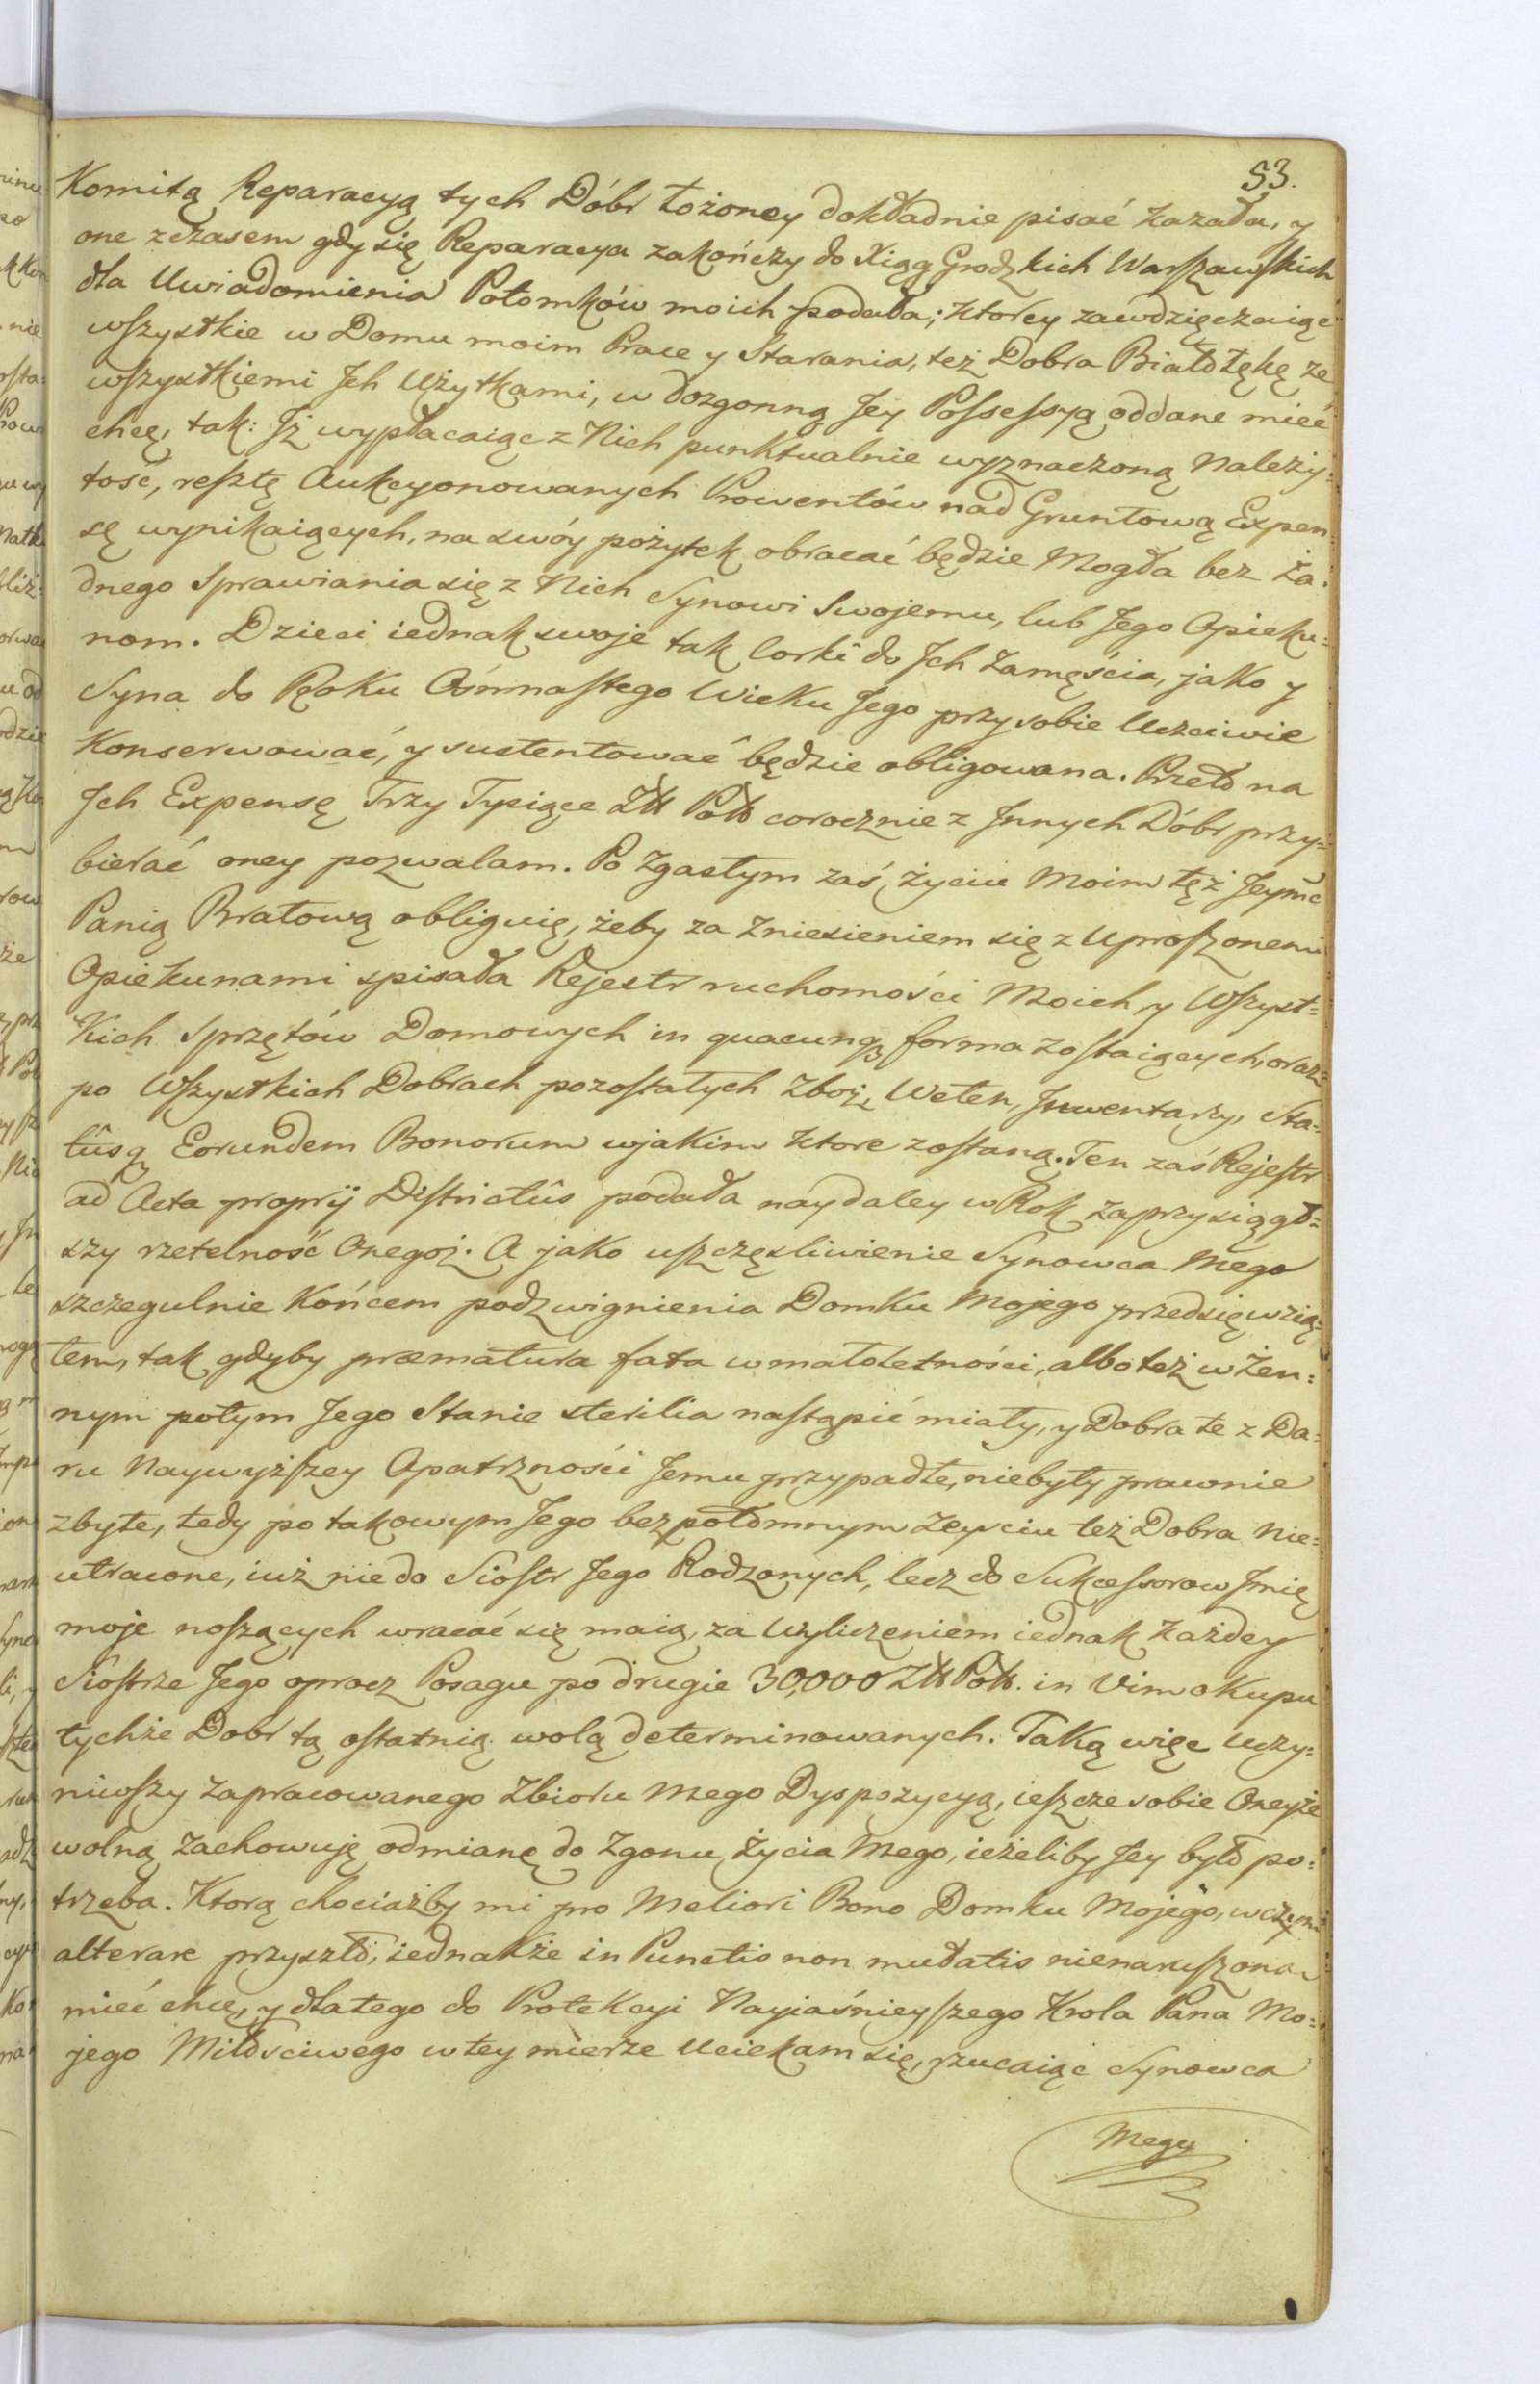 53.
Komitą Reparacyą tych Dóbr łożoney dokładnie pisać kazała, y
one z czasem gdy się Reparacya zakończy do Xiąg Grodzkich Warszawskich
dla Uwiadomienia Potomków moich podała; ktorey zawdzięczaiąc
wszystkie w Domu moim Prace y Starania, też Dobra Białołękę ze
wszystkiemi Jch Użytkami, w dozgonną Jey Possessyą oddane mieć
chcę, tak: Jż wypłacaiąc z Nich punktualnie wyznaczoną Należy=
tość, resztę Aukcyonowanych Prowentów nad Gruntową Expen=
sę wynikaiących, na swóy pożytek obracać będzie Mogła bez Ża=
dnego Sprawiania się z Nich Synowi Swojemu, lub Jego Opieku=
nom. Dzieci iednak swoje tak Corki do Jch Zamęścia, jako y
Syna do Roku Ośmnastego Wieku Jego przy sobie Uczciwie
Konserwować, y sustentować będzie obligowana. Przeto na
Jch Expensę Trzy Tysiące Złł Połł corocznie z Jnnych Dóbr przy=
bierać oney pozwalam. Po Zgasłym zaś życiu Moim tęż Jeymc
Panią Bratową obliguię, żeby za Zniesieniem się z Uproszonemi
Opiekunami spisała Rejestr ruchomości Moich, y Wszyst=
kich Sprzętów Domowych in quacunq forma zostaiących, oraz
po Wszystkich Dobrach pozostałych Zboż, Weten, Jnwentarzy, Sta=
tûsq Eorundem Bonorum w jakim ktore zostaną. Ten zaś Rejestr
ad Acta proprij Districtûs podała naydaley w Rok zaprzysiągł=
szy rzetelność Onegoż. A jako uszczęsliwienie Synowca Mego
szczegulnie Końcem podzwignienia Domku Mojego przedsięwzią=
łem, tak gdyby præmatura fata w małoletności, albo też w Żen=
nym potym Jego Stanie sterilia nastąpić miały, y Dobra te z Da=
ru Naywyższey Opatrzności Jemu przypadłe, niebyły prawnie
zbyte, tedy po takowym Jego bezpotomnym zeyściu też Dobra Nie=
utracone, iuż nie do Siostr Jego Rodzonych, lecz do Sukcessorow Jmię
moje noszących wracać się maią, za Wyliczeniem iednak każdey
Siostrze Jego oprocz Posagu po drugie 30,000 Złł Połł. in Vim okupu
tychże Dobr tą ostatnią wolą determinowanych. Taką więc Uczy=
niwszy zapracowanego Zbioru Mego Dyspozycyą, ieszcze sobie Oneyże
wolną zachowuję odmianę do Zgonu Życia Mego, ieżeliby Jey było po=
trzeba. Ktorą chociażby mi pro Meliori Bono Domku Mojego, w czym
alterare przyszło, iednakże in Punctis non mutatis nienaruszoną
mieć chcę, y dlatego do Protekcyi Nayiaśnieyszego Krola Pana Mo=
jego Miłościwego w tey mierze Uciekam się, rzucaiąc Synowca
Mego